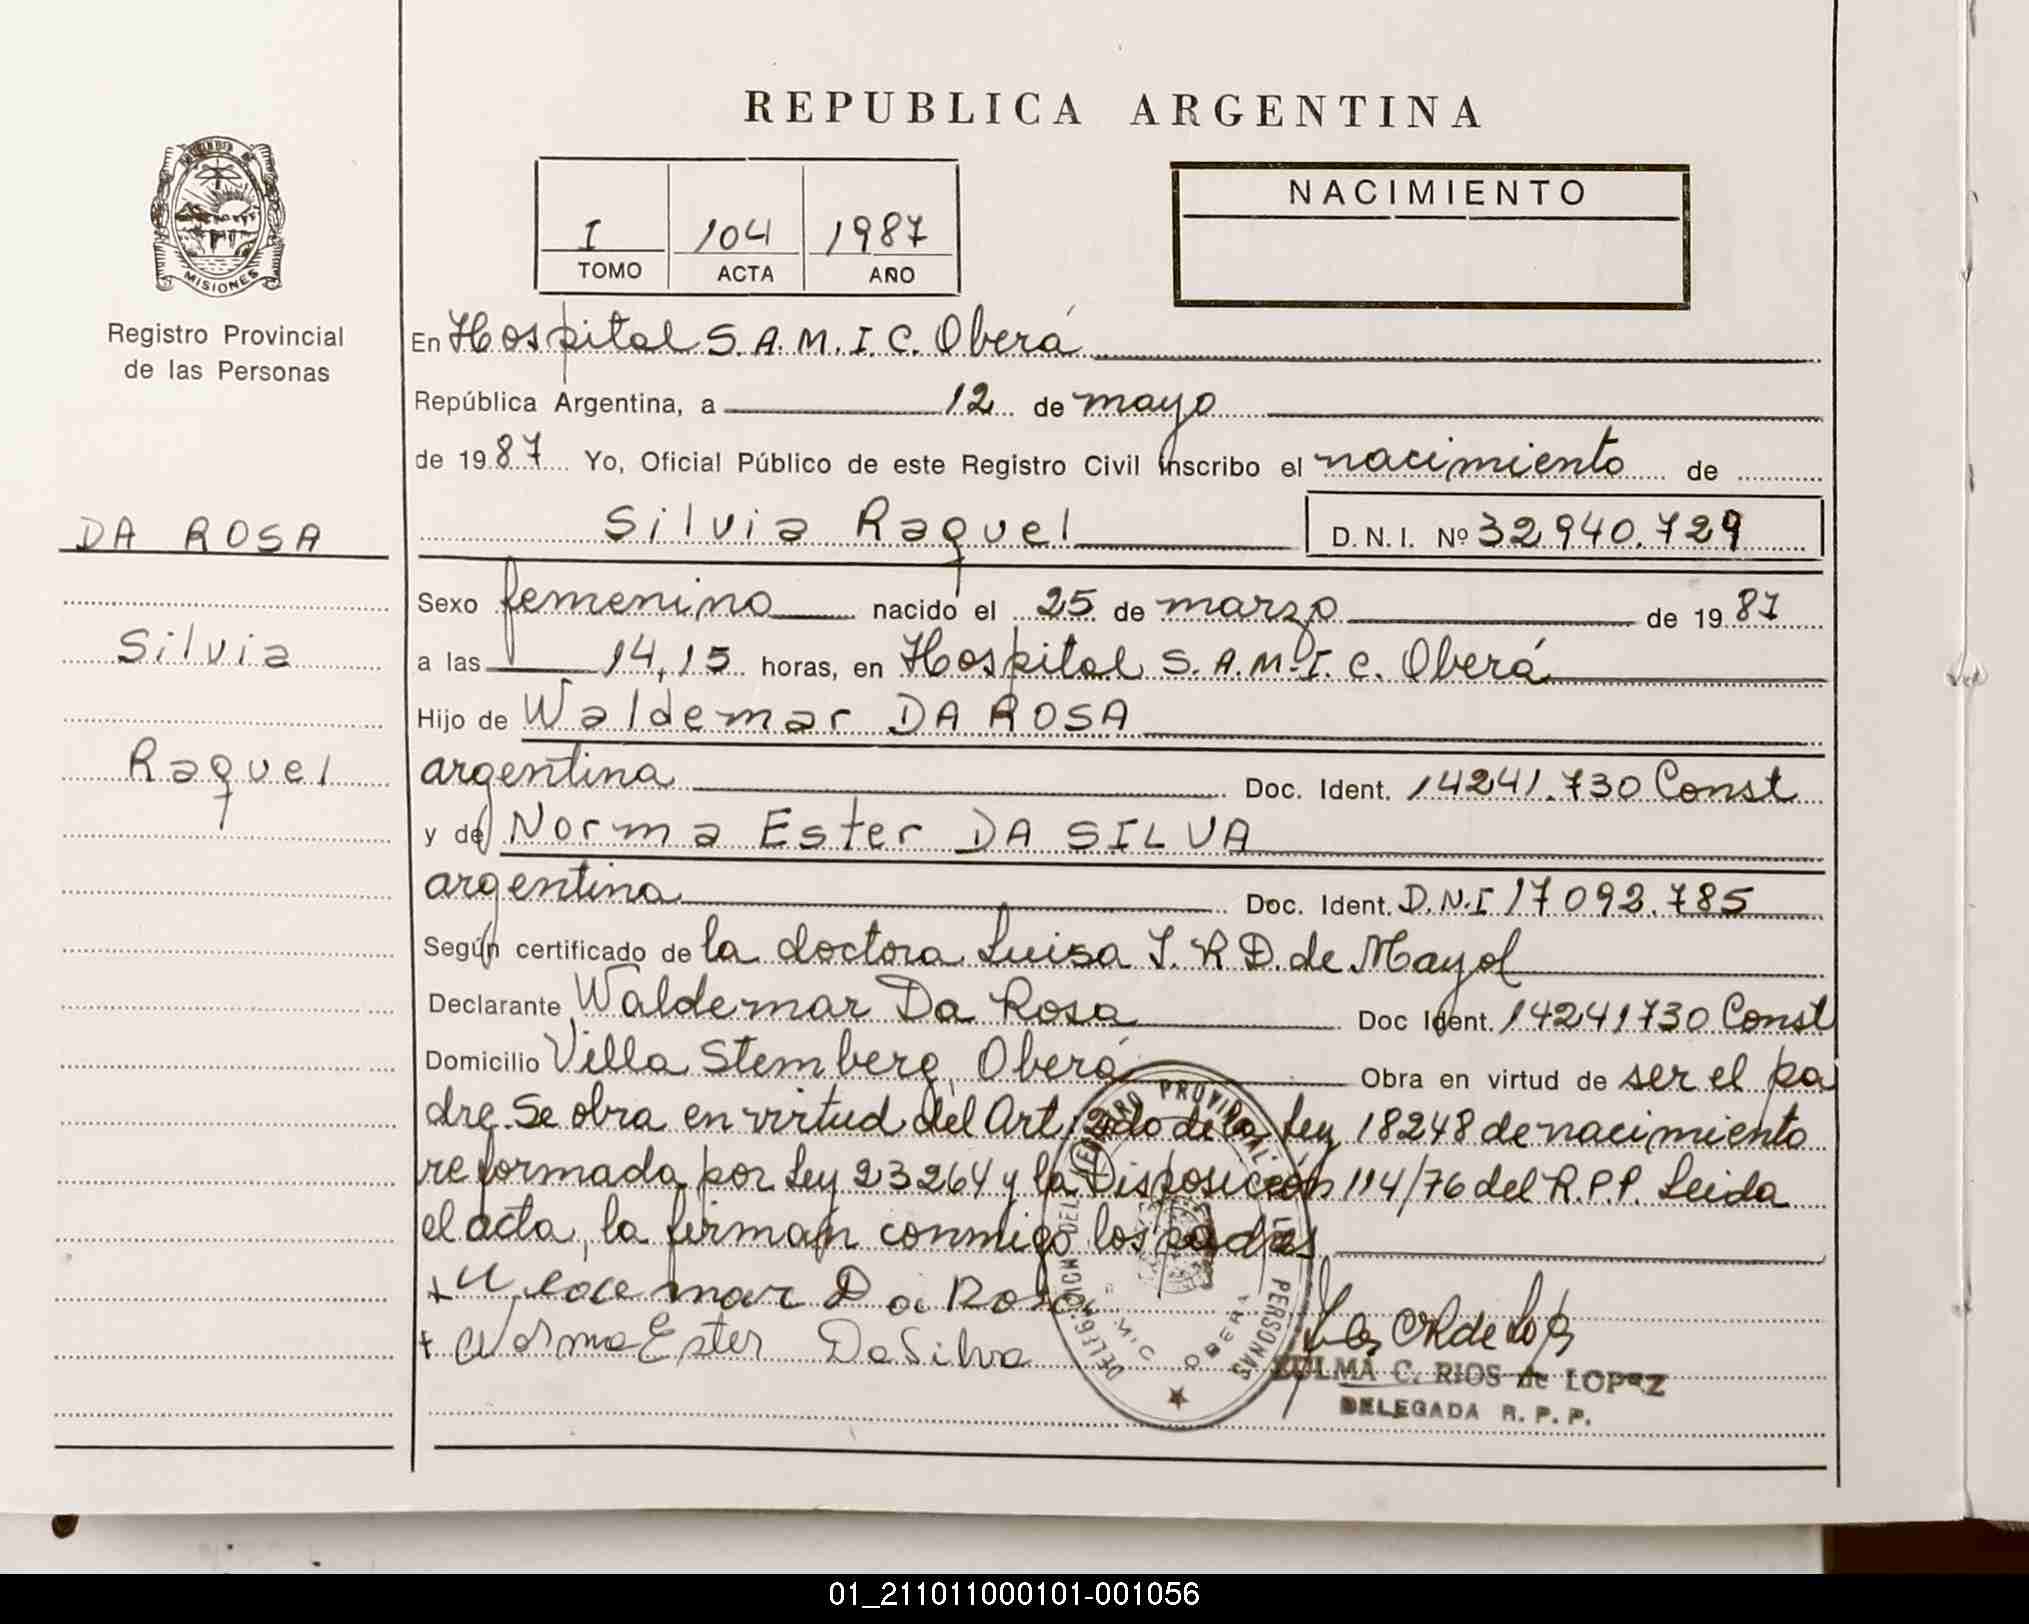 REPUBLICA ARGENTINA
NACIMIENTO
I 104 1987
TOMO ACTA AÑO
MISIONES
Registro Provincial
de las Personas
DA ROSA
Silvia
Raquel
En Hospital S.A.M.I.C. Oberá
República Argentina, a 12 de mayo
de 1987 Yo, Oficial Público de este Registro Civil inscribo el nacimiento de
Silvia Raquel D.N.I. Nº 32.940.729
Sexo femenino nacido el 25 de marzo de 1987
a las 14,15 horas, en Hospital S.A.M.I.C. Oberá
Hijo de Waldemar DA ROSA
argentina Doc. Ident. 14241.730 Const
y de Norma Ester DA SILVA
argentina Doc. Ident. D.N.I 17092.785
Según certificado de la doctora Luisa R D. de Mayol
Declarante Waldemar Da Rosa Doc Ident. 14241730 Const
Domicilio Villa Stemberg, Oberá Obra en virtud de ser el pa
dre. Se obra en virtud del Art. 2do de la Ley 18248 de nacimiento
reformada por Ley 23264 y la Disposición 114/76 del R.P.P. Leida
el acta, la firman conmigo los padres
Da Rosa
+ Norma Ester Da Silva
DELEGACION DEL REGISTRO PROVINCIAL DE LAS PERSONAS
OBERA
ZULMA C. RIOS de LOPEZ
DELEGADA R. P. P.
01_211011000101-001056